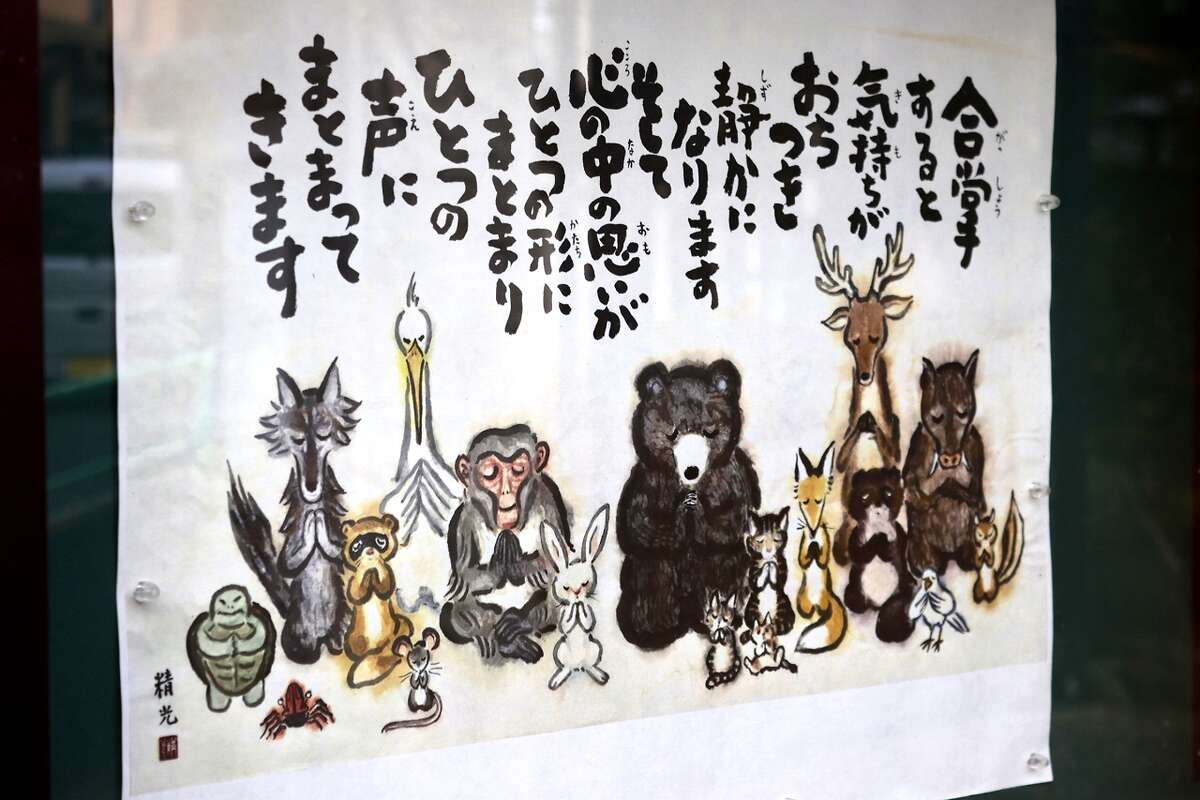 合掌
がっしょう
すると
気持ちが
きも
おち
つき
静かに
しず
なります
そして
心の中の思いが
こころなかおも
ひとつの形に
かたち
まとまり
ひとつの
声に
こえ
まとまって
きます
精光